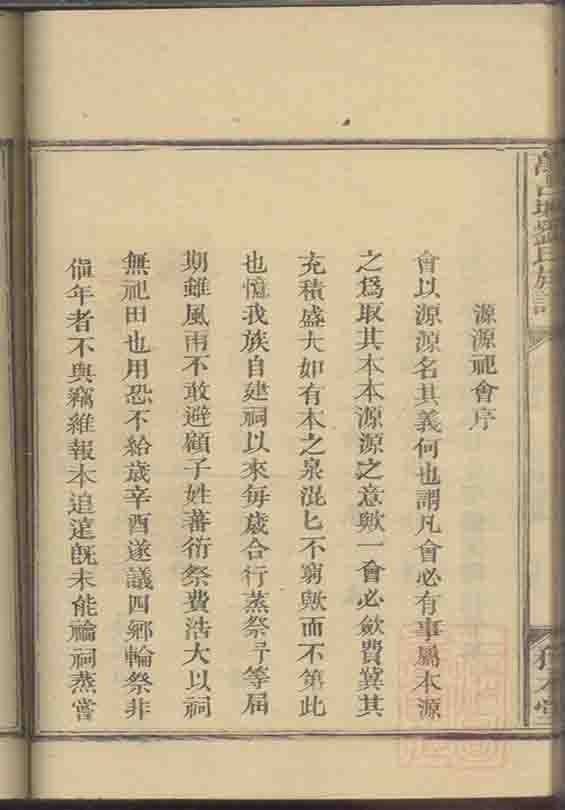 源源祀會序
會以源源名其義何也謂凡會必有事屬本源
之爲取其本本源源之意歟一會必歛費冀其
充積盛大如有本之泉混匕不窮歟而不第此
也憶我族自建祠以來每歳合行蒸祭予等届
期雖風雨不敢避顧子姓蕃衍祭費浩大以祠
無祀田也用恐不給歳辛酉遂議四郷輪祭非
値年者不與竊維報本追遠旣未能禴祠蒸嘗
劉氏族譜